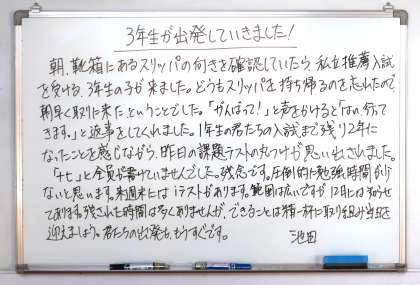 3年生が出発していきました!
朝、靴箱にあるスリッパの向きを確認していたら 私立推薦入試
を受ける、3年生の子が来ました。どうもスリッパを持ち帰るのを忘れたので、
朝早く取りに来た、ということでした。「がんばって!」と声をかけると「はい、行って
きます。」と返事をしてくれました。1年生の君たちの入試まで残り2年に
なったことを感じながら、昨日の課題テストの丸つけが思い出されました。
と全員が書けていませんでした。残念です。圧倒的に勉強時間が少
ないと思います。来週末には テストがあります。範囲は広いですが、12月には知らせ
てあります。残された時間は多くありませんが、できることは精一杯に取り組み当日を
迎えましょう。君たちの出発も、もうすぐです。
池田